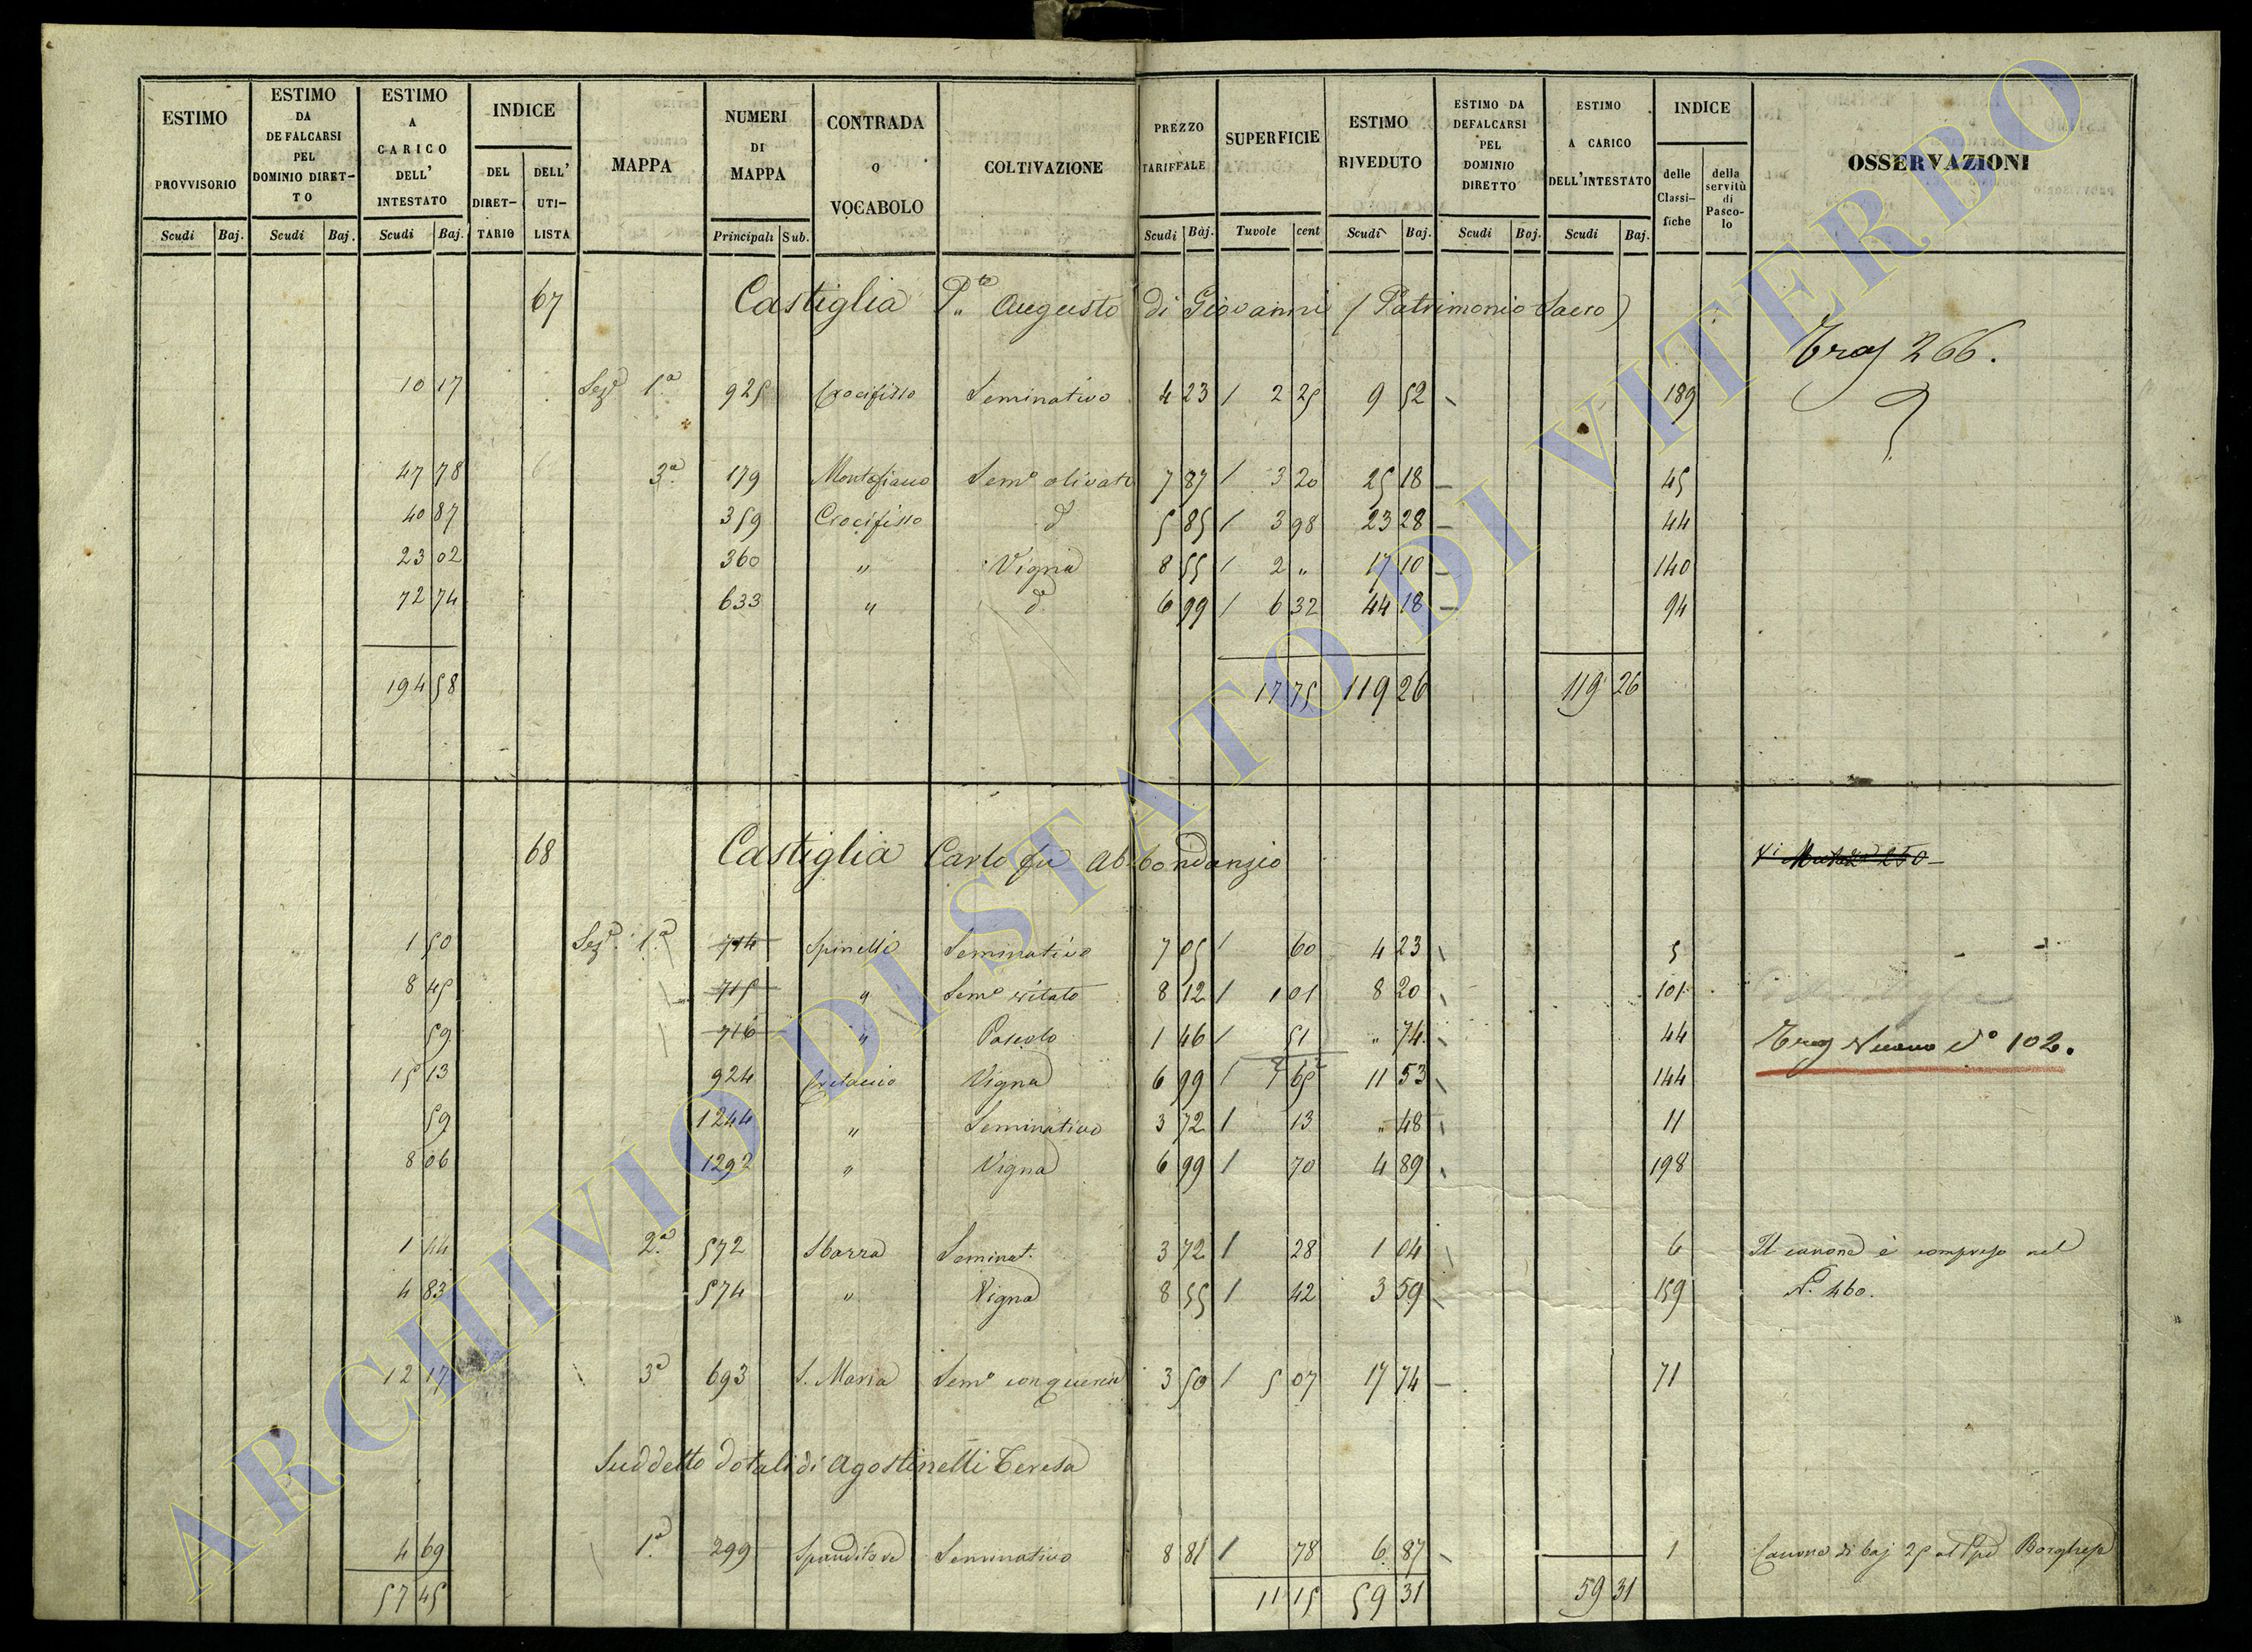 ESTIMO PROVVISORIO Scudi Baj.
ESTIMO DA DEFALCARSI PEL DOMINIO DIRET-TO Scudi Baj.
ESTIMO A CARICO DELL' INTESTATO Scudi Baj.
INDICE DEL DIRET-TARIO DELL' UTI-LISTA
MAPPA
NUMERI DI MAPPA Principali Sub.
CONTRADA O VOCABOLO
COLTIVAZIONE
PREZZO TARIFFALE Scudi Baj.
SUPERFICIE Tavole cent
ESTIMO RIVEDUTO Scudi Baj.
ESTIMO DA DEFALCARSI PEL DOMINIO DIRETTO Scudi Baj.
ESTIMO A CARICO DELL'INTESTATO Scudi Baj.
INDICE delle Classi-fiche della servitù di Pasco-lo
OSSERVAZIONI
67 Castiglia Augusto di Giovanni (Patrimonio Sacro)
266.
10 17 Sez. 1a 925 Crocifisso Seminativo 4 23 / 2 25 9 52 189
47 78 3a 179 Semo olivato 7 87 / 3 20 25 18 — 45
40 87 359 Crocifisso d 5 85 / 3 98 23 28 — 44
23 02 360 " Vigna 8 55 / 2 " 17 10 — 140
72 74 633 " d 6 99 / 6 32 44 18 — 94
194 58 17 75 119 26 119 26
68 Castiglia Carlo fu Abbondanzio
1 50 Sez. 1a 714 Spinelli Seminativo 7 05 / 60 4 23 5
8 45 715 " Semo vitato 8 12 / 1 01 8 20 101
59 716 " Pascolo 1 46 / 51 " 74 44
Nuovo No 102.
15 13 924 Vigna 6 99 / 1 65 11 53 144
59 1244 " Seminativo 3 72 / 13 " 48 11
8 06 1292 " Vigna 6 99 / 70 4 89 198
1 44 2a 572 Sbarra Seminat. 3 72 / 28 1 04 6 Il canone è compreso nel
4 83 574 " Vigna 8 55 / 42 3 59 159 N. 460.
12 17 3a 693 S. Maria Semo con quercia 3 50 / 5 07 17 74 — 71
Suddetto dotali di Agostinelli Teresa
4 69 1a 299 Seminativo 8 81 / 78 6 87 1 Canone di baj 25 al Borghese
57 45 11 15 59 31 59 31
ARCHIVIO DI STATO DI VITERBO